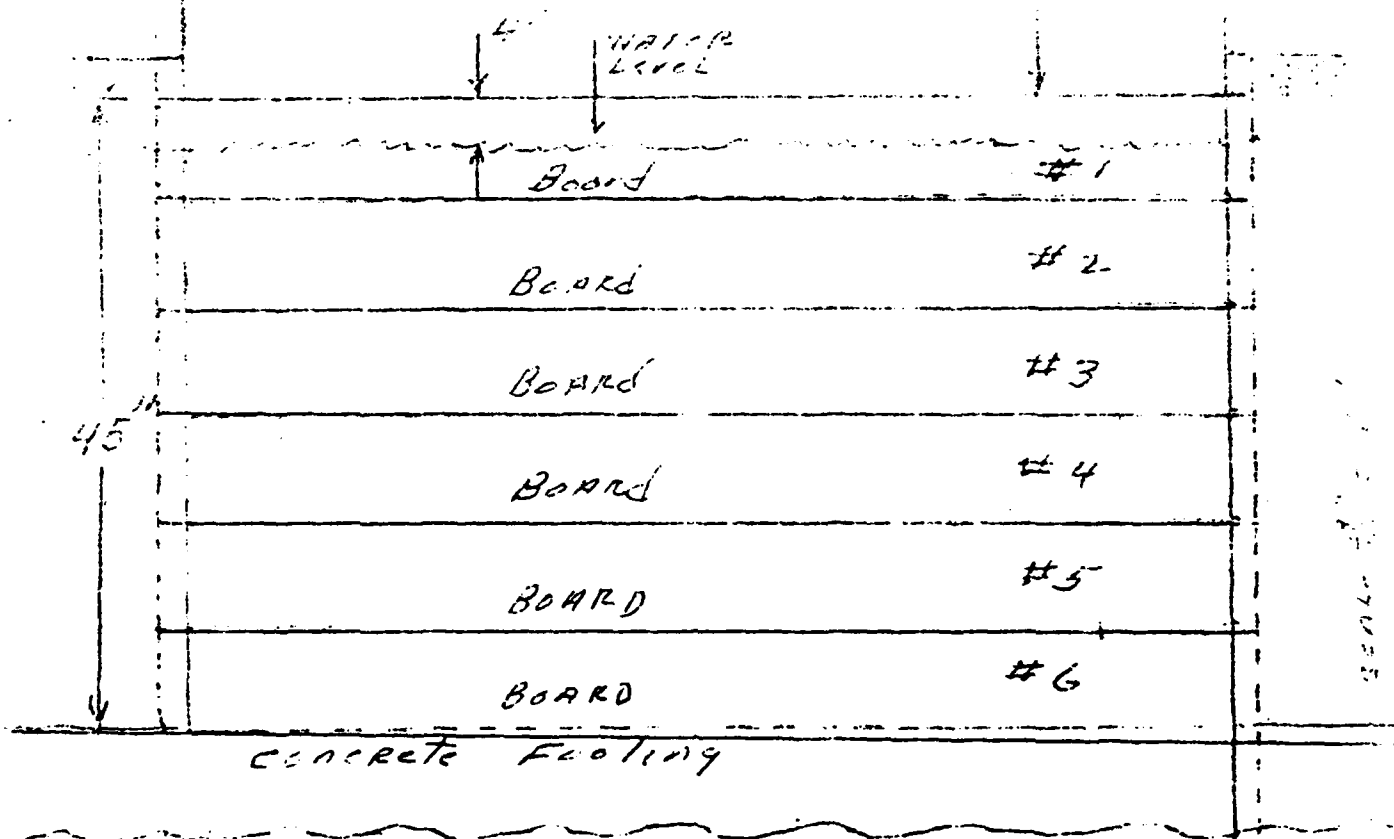 4"
WATER
Level
Board #1
Board #2
Board #3
45"
Board #4
BOARD #5
BOARD #6
concrete Footing